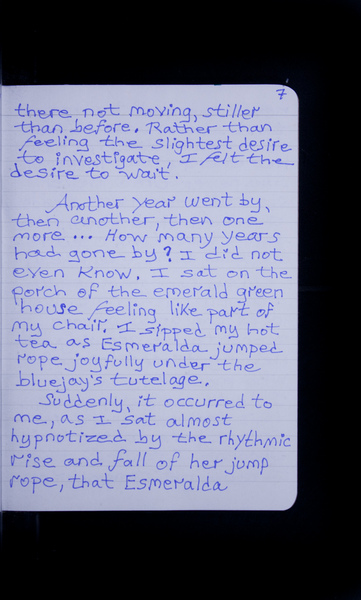 7
there not moving, stiller
than before. Rather than
feeling the slightest desire
to investigate, I felt the
desire to wait.
Another year went by,
then another, then one
more ... How many years
had gone by? I did not
even know. I sat on the
porch of the emerald green
house feeling like part of
my chair. I sipped my hot
tea as Esmeralda jumped
rope joyfully under the
bluejay's tutelage.
Suddenly, it occurred to
me, as I sat almost
hypnotized by the rhythmic
rise and fall of her jump
rope, that Esmeralda